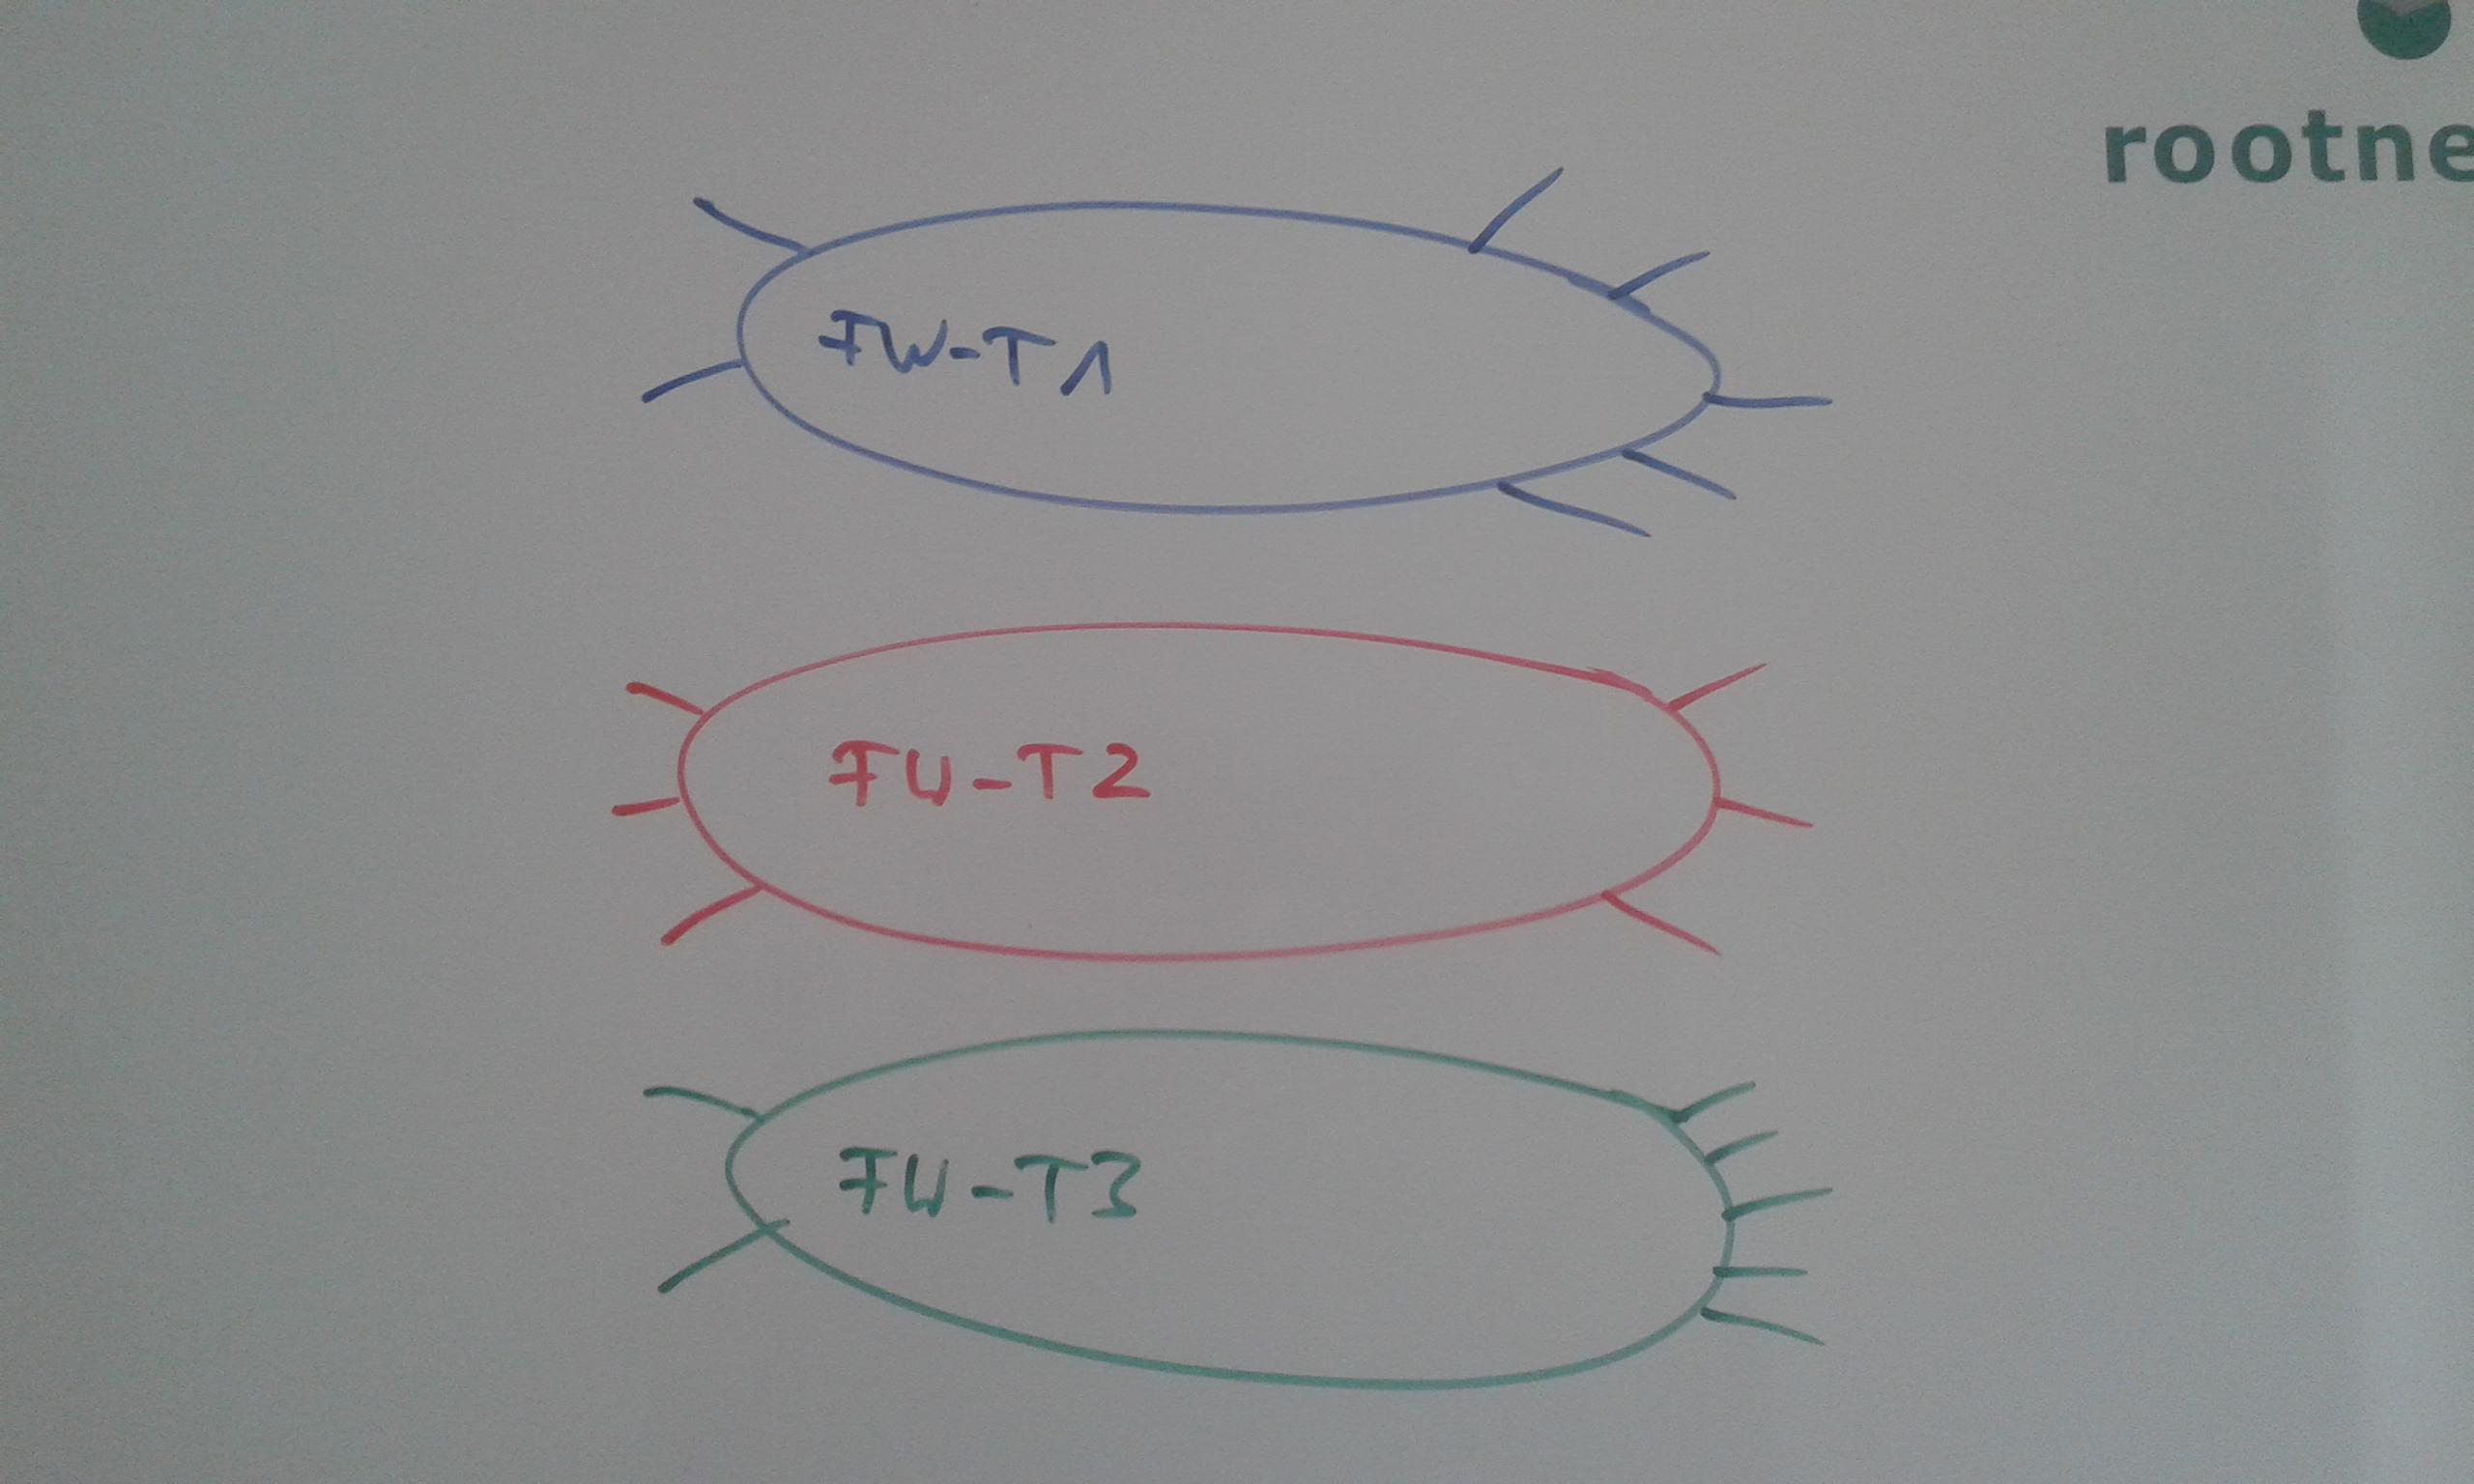 rootne
FW-T1
FW-T2
FW-T3